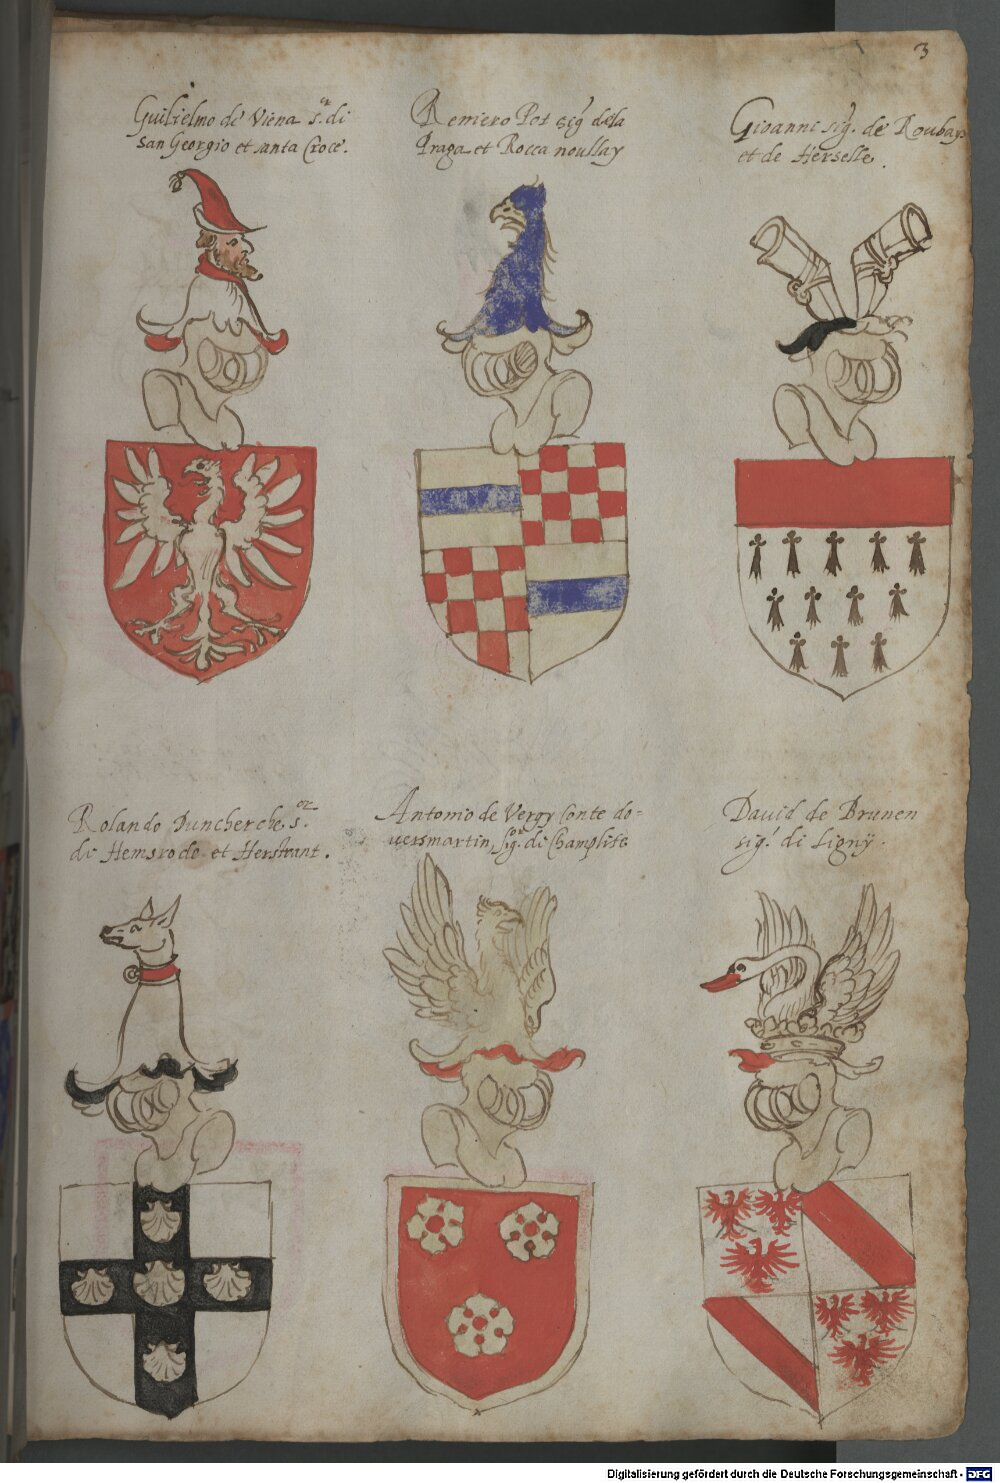 3
Guilielmo de Viena s.or di
san Georgio et santa Croce.
Reniero Pot sig.r dela
Praga et Rocca noullay
Gioanni sig.r de Roubays
et de Herselle.
Rolando Duncherche s.or
di Hemsrode et Herstrant.
Antonio de Vergy Conte do=
uersmartin, sig.or di Champlite
David de Brunen
sig.r di Ligny.
Digitalisierung gefördert durch die Deutsche Forschungsgemeinschaft - DFG